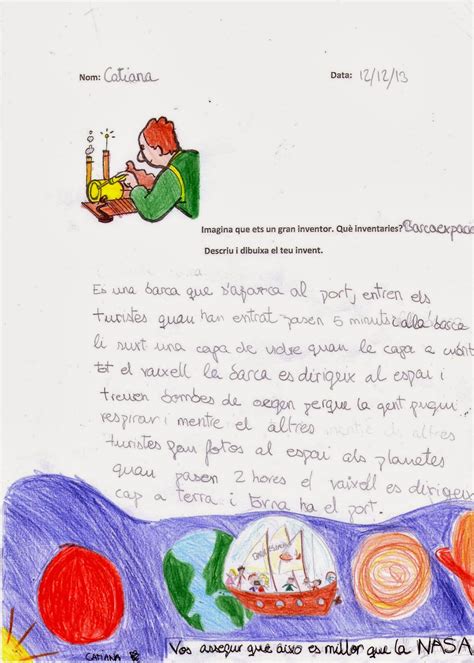 Nom: Catiana Data: 12/12/13
Imagina que ets un gran inventor. Què inventaries? Barcaexpacia
Descriu i dibuixa el teu invent.
Es una barca que s'aparca al port, entren els
turistes quan han entrat pasen 5 minuts i a la barca
li surt una capa de vidre quan le capa a cubrit
tot el vaixell la barca es dirigeix al espai i
treuen bombes de oxgen perque la gent pugui
respirar i mentre el altres
turistes fan fotos al espai als planetes
quan pasen 2 hores el vaixell es dirigeix
cap a terra i torna ha el port.
Vos assegur que això es millor que la NASA
CATIANA